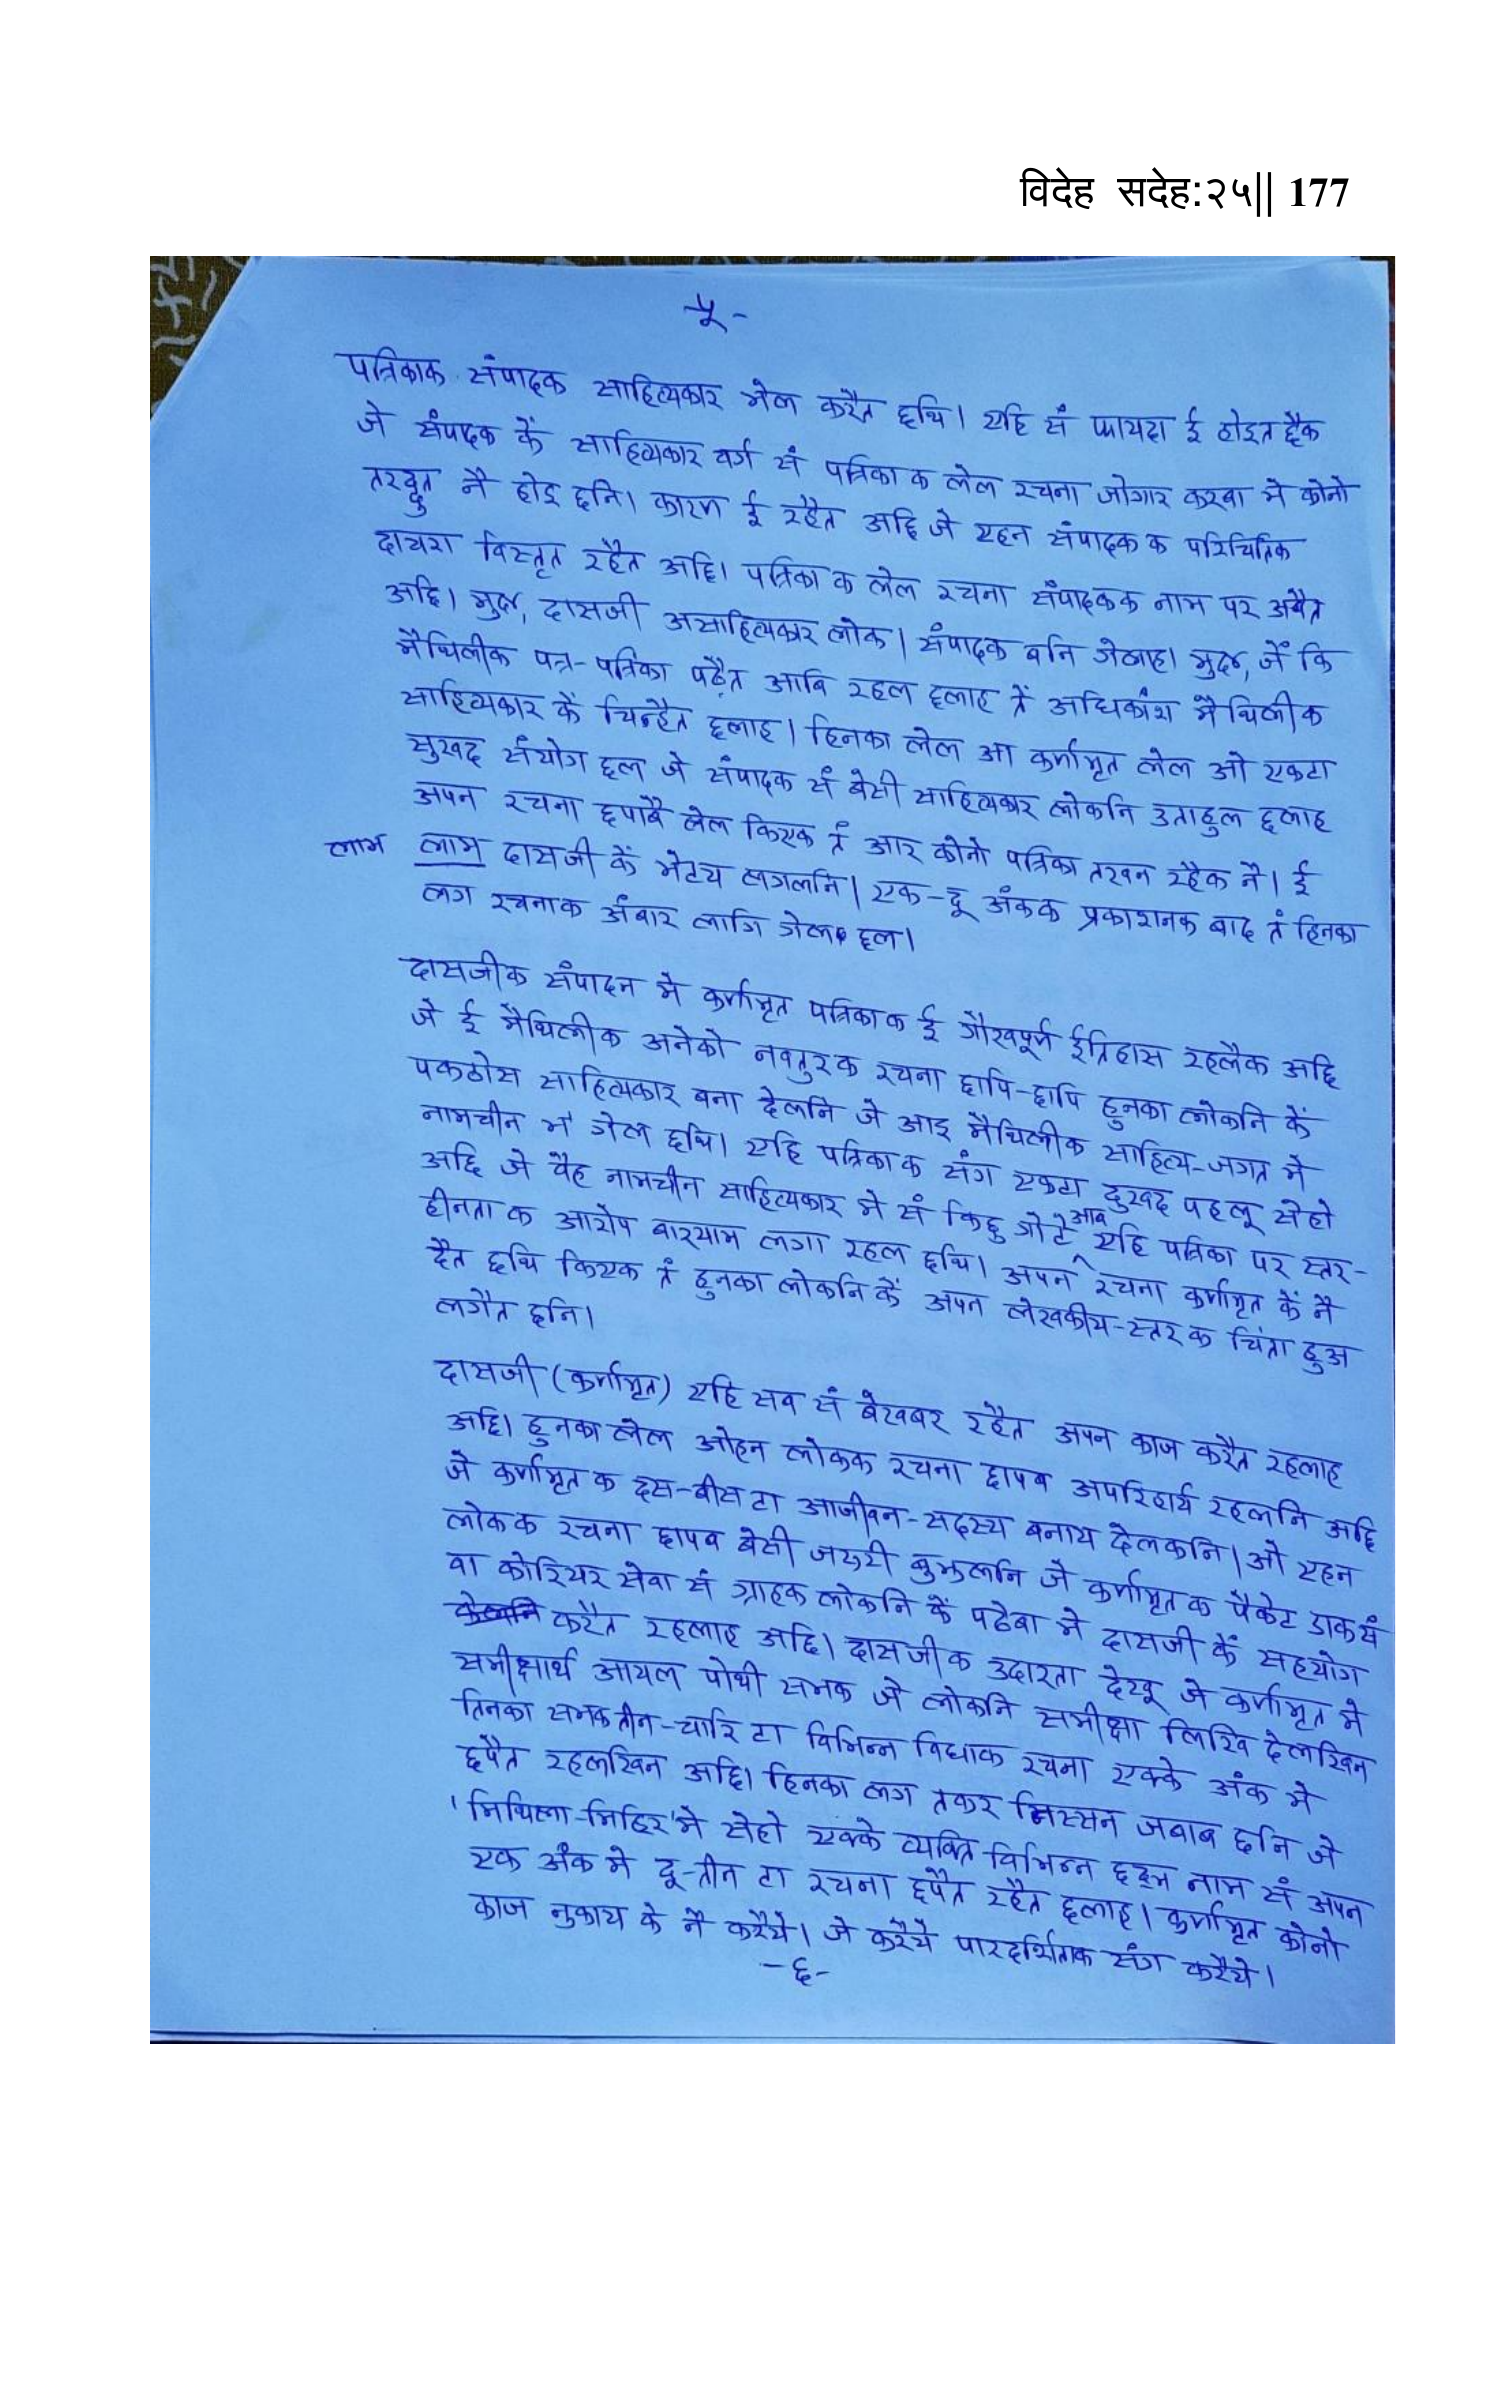 विदेह सदेह:२५|| 177
-५-
पत्रिकाक संपादक साहित्यकार भेल करैत छथि। एहि सँ फायदा ई होइत छैक
जे संपादक कें साहित्यकार वर्ग सँ पत्रिका क लेल रचना जोगार करबा मे कोनो
तरद्दुत नै होइ छनि। कारण ई रहैत अछि जे एहन संपादक क परिचितिक
दायरा विस्तृत रहैत अछि। पत्रिका क लेल रचना संपादकक नाम पर अबैत
अछि। मुदा, दासजी असाहित्यकार लोक। संपादक बनि गेलाह। मुदा, जें कि
मैथिलीक पत्र-पत्रिका पढ़ैत आबि रहल छलाह तें अधिकांश मैथिलीक
साहित्यकार कें चिन्हैत छलाह। हिनका लेल आ कर्णामृत लेल ओ एकटा
सुखद संयोग छल जे संपादक सँ बेसी साहित्यकार लोकनि उताहुल छलाह
अपन रचना छपाबै लेल किएक तँ आर कोनो पत्रिका तखन रहैक नै। ई
लाभ लाभ दासजी कें भेटय लगलनि। एक-दू अंकक प्रकाशनक बाद तँ हिनका
लग रचनाक अंबार लागि गेल छल।
दासजीक संपादन मे कर्णामृत पत्रिका क ई गौरवपूर्ण ईतिहास रहलैक अछि
जे ई मैथिलीक अनेको नवतुरक रचना छापि-छापि हुनका लोकनि कें
पकठोस साहित्यकार बना देलनि जे आइ मैथिलीक साहित्य-जगत मे
नामचीन भ' गेल छथि। एहि पत्रिका क संग एकटा दुखद पहलू सेहो
अछि जे वैह नामचीन साहित्यकार मे सँ किछु गोटे आब एहि पत्रिका पर स्तर-
हीनता क आरोप बारयाम लगा रहल छथि। अपन रचना कर्णामृत कें नै
दैत छथि किएक तँ हुनका लोकनि कें अपन लेखकीय-स्तर क चिंता हुअ
लगैत छनि।
दासजी (कर्णामृत) एहि सब सँ बेखबर रहैत अपन काज करैत रहलाह
अछि। हुनका लेल ओहन लोकक रचना छापब अपरिहार्य रहलनि अछि
जे कर्णामृत क दस-बीस टा आजीवन-सदस्य बनाय देलकनि। ओ एहन
लोकक रचना छापब बेसी जरुरी बुझलनि जे कर्णामृत क पैकेट डाक सँ
वा कोरियर सेवा सँ ग्राहक लोकनि कें पठेबा मे दासजी कें सहयोग
करैत रहलाह अछि। दासजीक उदारता देखू जे कर्णामृत मे
समीक्षार्थ आयल पोथी सभक जे लोकनि समीक्षा लिखि देलखिन
तिनका सभक तीन-चारि टा विभिन्न विधाक रचना एक्के अंक मे
छपैत रहलखिन अछि। हिनका लग तकर निस्सन जबाब छनि जे
'मिथिला-मिहिर' मे सेहो एक्के व्यक्ति विभिन्न छद्म नाम सँ अपन
एक अंक मे दू-तीन टा रचना छपैत रहैत छलाह। कर्णामृत कोनो
काज नुकाय के नै करैये। जे करैये पारदर्शिताक संग करैये।
-६-